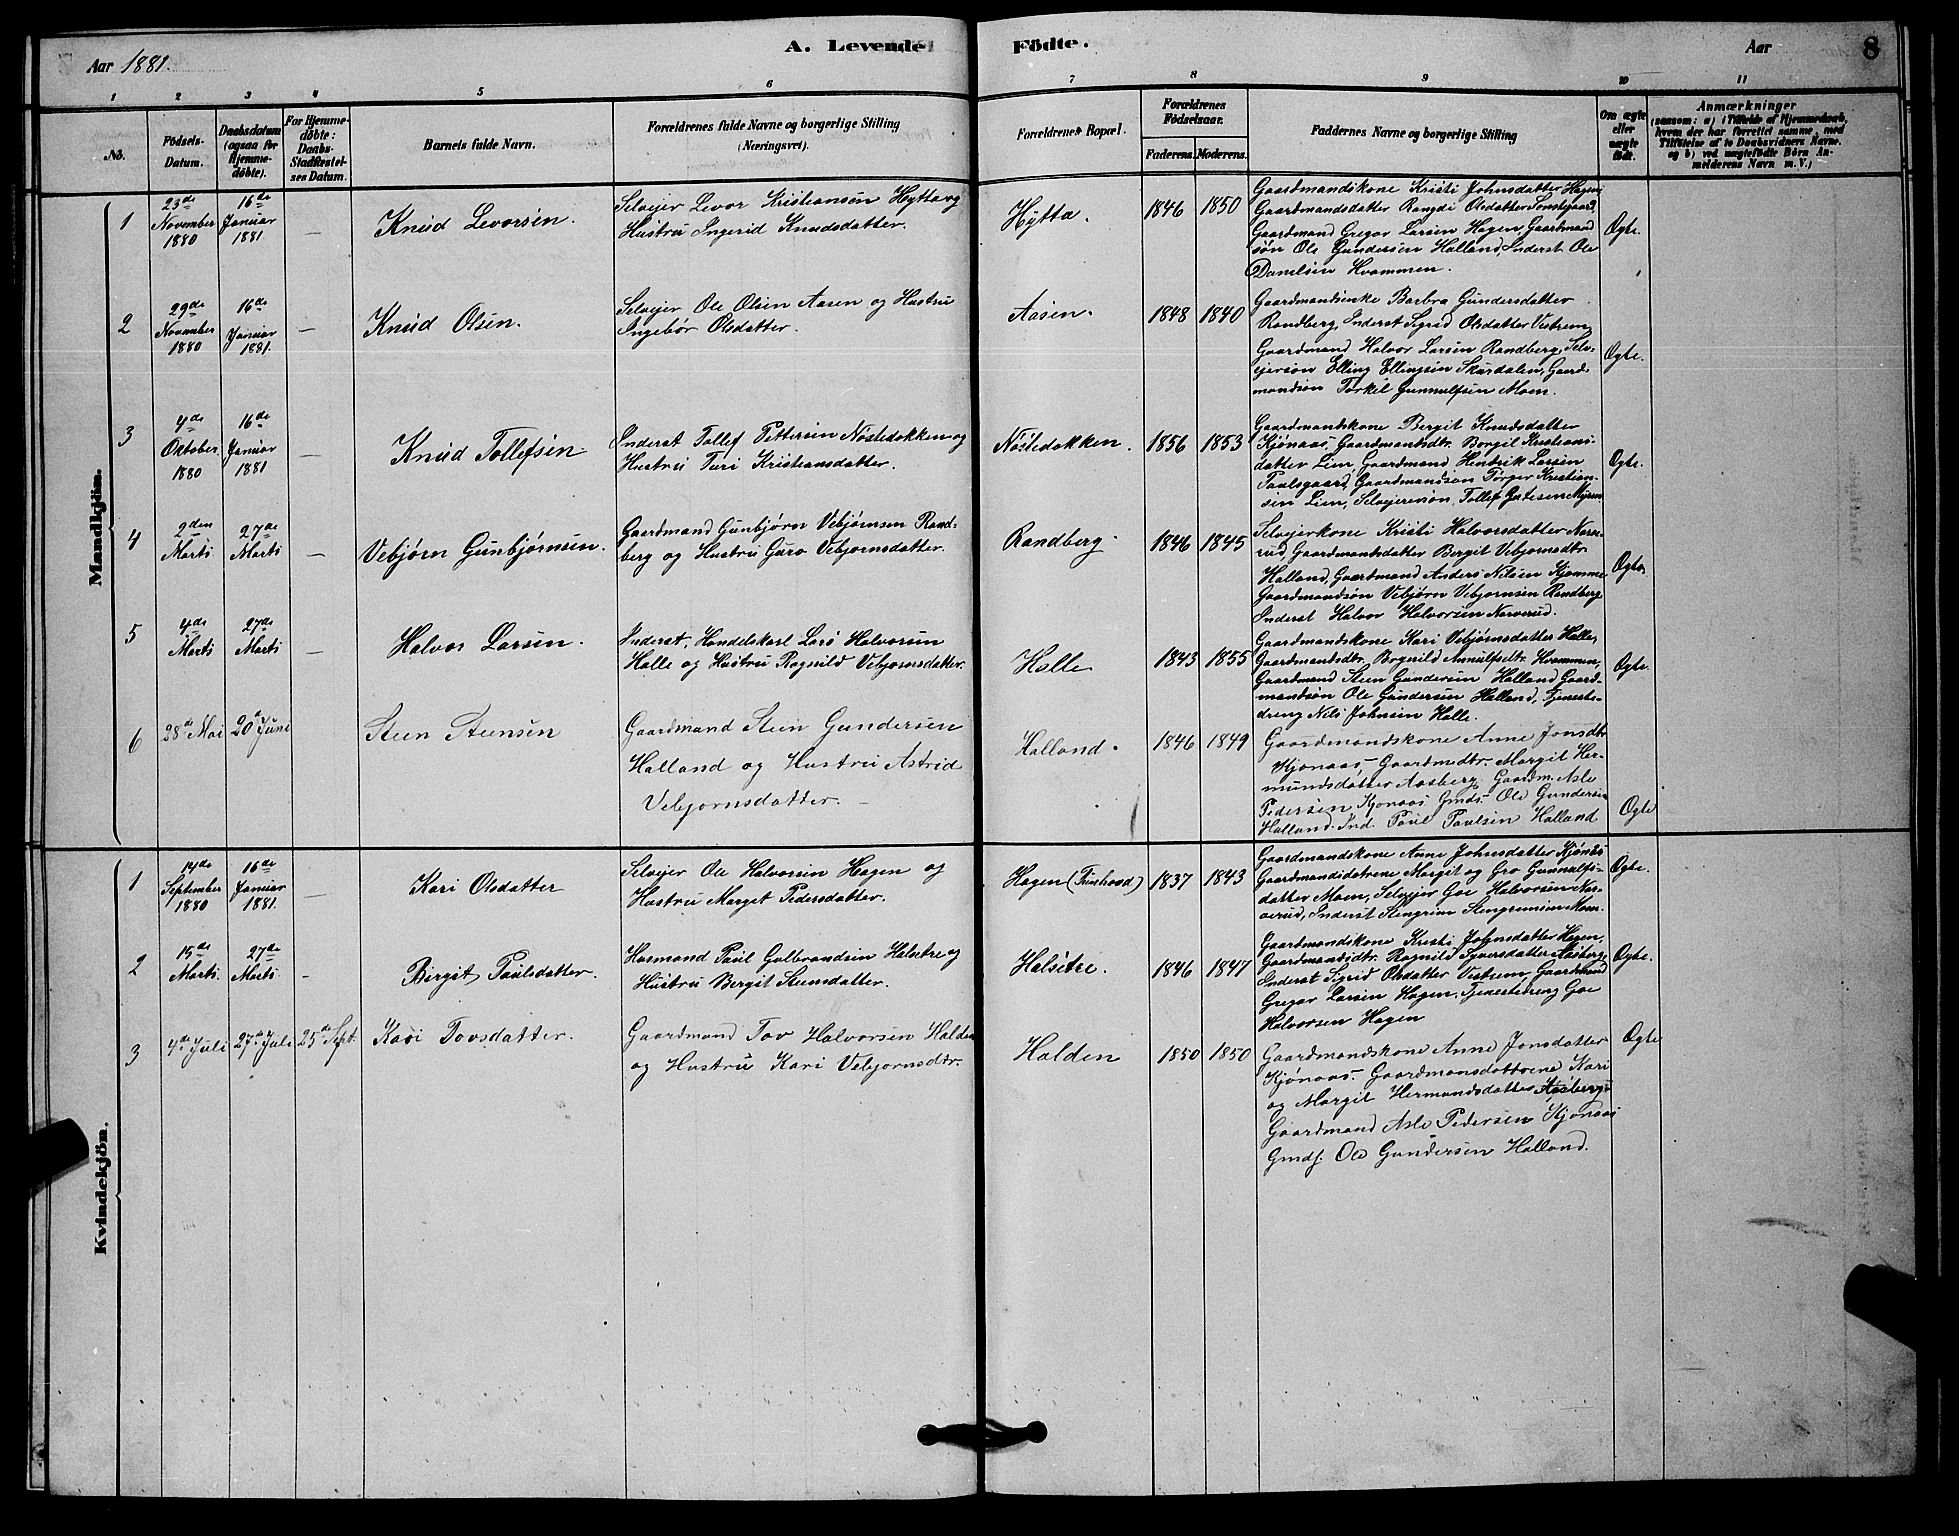 Aar 1881.
A. Levende Födte.
Aar
8
1 2 3 4 5 6 7 8 9 10 11
No.
Födsels-Datum.
Daabsdatum (ogsaa for Hjemme-döbte).
For Hjemme-döbte: Daabs-Stadfæstel-ses Datum.
Barnets fulde Navn.
Forældrenes fulde Navne og borgerlige Stilling (Næringsvei).
Forældrenes Bopæl.
Forældrenes Födselsaar.
Faderens. Moderens.
Faddernes Navne og borgerlige Stilling
Om ægte eller uægte födt.
Anmærkninger
(saasom: a) i Tilfælde af Hjemmedaab,
hvem der har forrettet samme, med
Tilföielse af to Daabsvidners Navne.
og b) ved uægtefödte Börn An-
melderens Navn m. V.)
Mandkjön.
1
23de November 1880
16de Januar 1881
—
Knud Levorsen.
Selveier Levor Kristiansen Hytta og
Hustru Ingerid Knudsdatter.
Hytta.
1846 1850
Gaardmandskone Kristi Johnsdatter Hagen
Gaardmandsdatter Rangdi Olsdatter
Gaardmand Gregar Larsen Hagen, Gaardmand
søn Ole Gundersen Halland, Inderst Ole
Danielsen Hvammen.
Ægte.
2
29de November 1880
16de Januar 1881.
—
Knud Olsen.
Selveier Ole Olsen Aasen og Hustru
Ingebør Olsdatter.
Aasen.
1848 1840
Gaardmandsenke Barbra Gundersdatter
Randberg, Inderst Sigrid Olsdatter Vestrem
Gaardmand Halvor Larsen Randberg, Selv-
eiersøn Elling Ellingsen Skurdalen, Gaard-
mandsøn Torkel Gunnulfsen Moen.
Ægte.
3
4de Oktober 1880
16de Januar 1881
—
Knud Tollefsen
Inderst Tollef Pettersen Nøstedokken og
Hustru Turi Kristiansdatter.
Nöstedokken.
1856 1853
Gaardmandskone Bergit Knudsdatter
Kjønaas, Gaardmandsdtr. Borgil Kristians-
datter Lien, Gaardmand Hendrik Larsen
Paulsgaard, Gaardmandsøn Torger Kristian-
sen Lien, Selveiersøn Tollef
Ægte.
4
2den Marts
27de Marts
—
Vebjørn Gunbjørnsen.
Gaardmand Gunbjørn Vebjørnsen Rand-
berg og Hustru Guro Vebjørnsdatter.
Randberg.
1846 1845
Selveierkone Kristi Halvorsdatter Narve-
rud, Gaardmandsdatter Bergit Vebjørnsdtr.
Halland, Gaardmand Anders Nilsen Kjomme
Gaardmandsøn Vebjørn Vebjørnsen Randberg
Inderst Halvor Halvorsen Narverud.
Ægte.
5
4de Marts
27de Marts
—
Halvor Larsen.
Inderst, Handelskarl Lars Halvorsen
Halle og Hustru Ragnild Vebjørnsdatter.
Halle
1843 1855
Gaardmandskone Kari Vebjørnsdatter Halle,
Gaardmandsdtr. Borgerild Hvammen,
Gaardmand Steen Gundersen Halland, Gaard-
mandsøn Ole Gundersen Halland, Tjeneste-
dreng Nils Johnsen Halle.
Ægte.
6
28de Mai
20de Juni
Steen Steensen
Gaardmand Steen Gundersen
Halland og Hustru Astrid
Vebjørnsdatter. —
Halland.
1846 1849
Gaardmandskone Anne Jonsdtr
Kjønaas, Gaardmdtr. Margit Her-
mundsdatter Aasberg, Gaardm. Asle
Pedersen Kjonaas Gmds. Ole Gundersen
Halland. Ind. Paul Paulsen Halland
Ægte
Kvindekjön.
1
14de September 1880
16de Januar 1881.
—
Kari Olsdatter
Selveier Ole Halvorsen Hagen og
Hustru Marget Pedersdatter.
Hagen
1837 1843
Gaardmandskone Anne Johnsdatter Kjønaas
Gaardmandsdøtrene Margit og Gro Gunnulfs-
datter Moen, Selveier Goe Halvorsen Nar-
verud, Inderst Stengrim Stengrimsen Moen.
Ægte.
2
15de Marts.
27de Marts.
—
Bergit Paulsdatter.
Husmand Paul Gulbrandsen Halsetre og
Hustru Bergit Steensdatter.
Halsetre.
1846 1847
Gaardmandskone Kristi Johnsdatter Hagen,
Gaardmandsdtr. Ragnild Syversdatter Aasberg,
Inderst Sigrid Olsdatter Vestrem, Gaardmand
Gregar Larsen Hagen, Tjenestedreng Goe
Halvorsen Hagen
Ægte.
3
4de Juli
27de Juli
25de Sept.
Kari Tovsdatter.
Gaardmand Tov Halvorsen Halden
og Hustru Kari Vebjornsdtr.
Halden
1850 1850
Gaardmandskone Anne Jonsdatter
Kjönaas. Gaardmandsdöttrene Kari
og Margit Hermundsdatter Aasberg
Gaardmand Asle Pedersen Kjonaas
Gmds. Ole Gundersen Halland.
Ægte